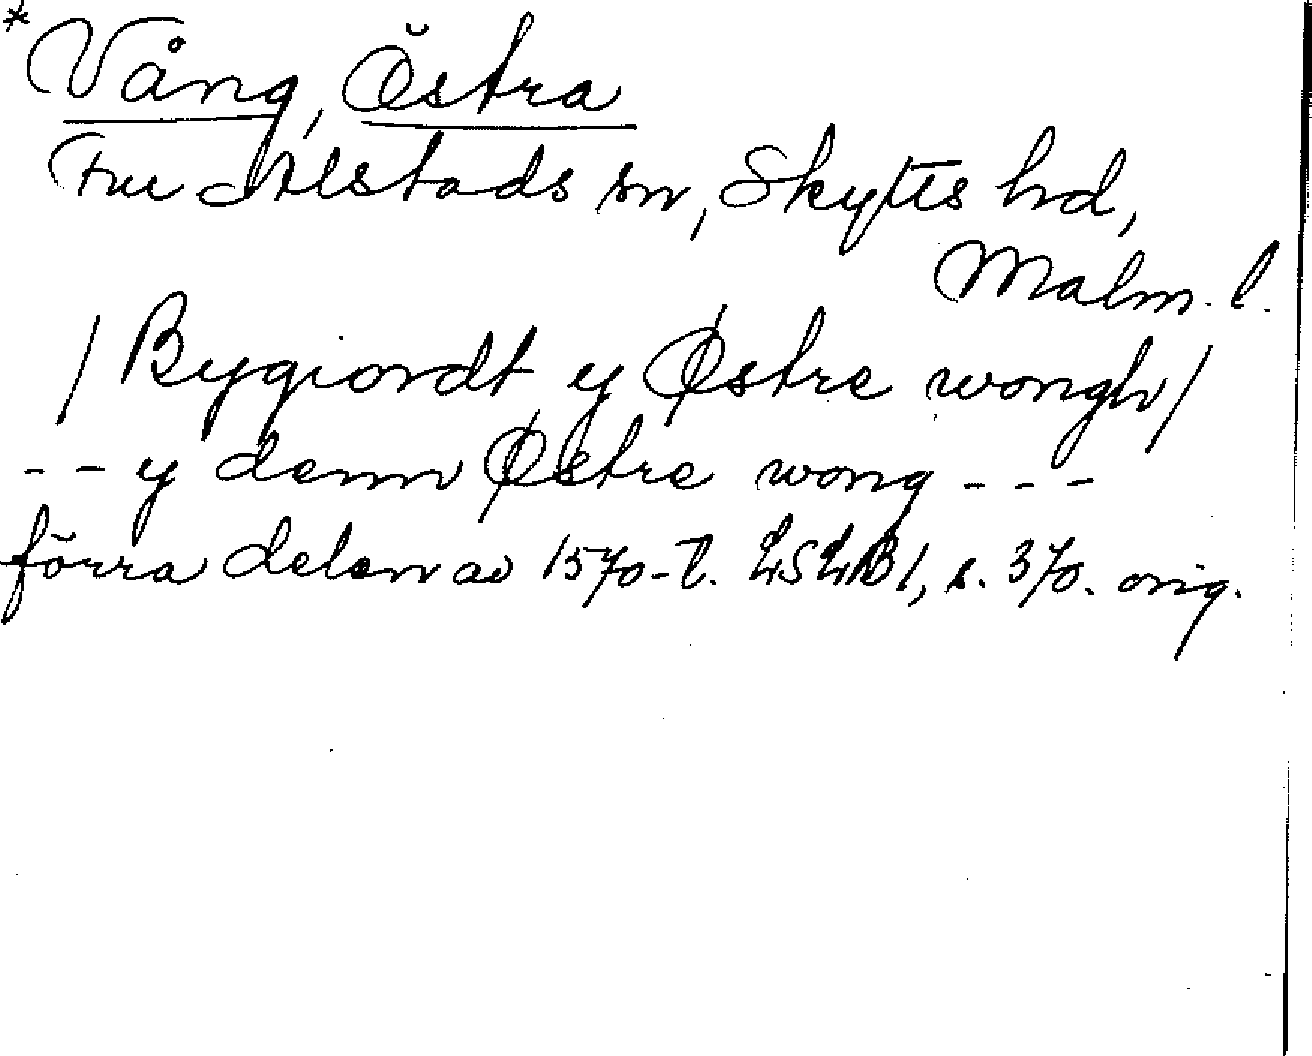 *Vång, Östra
Fru Alstads sn, Skytts hd,
Malm. l.
/ Bygiordt y Østre wongh /
-- y denn Østre wong ---
förra delen av 1570-t. LSLB 1, s. 370. orig.